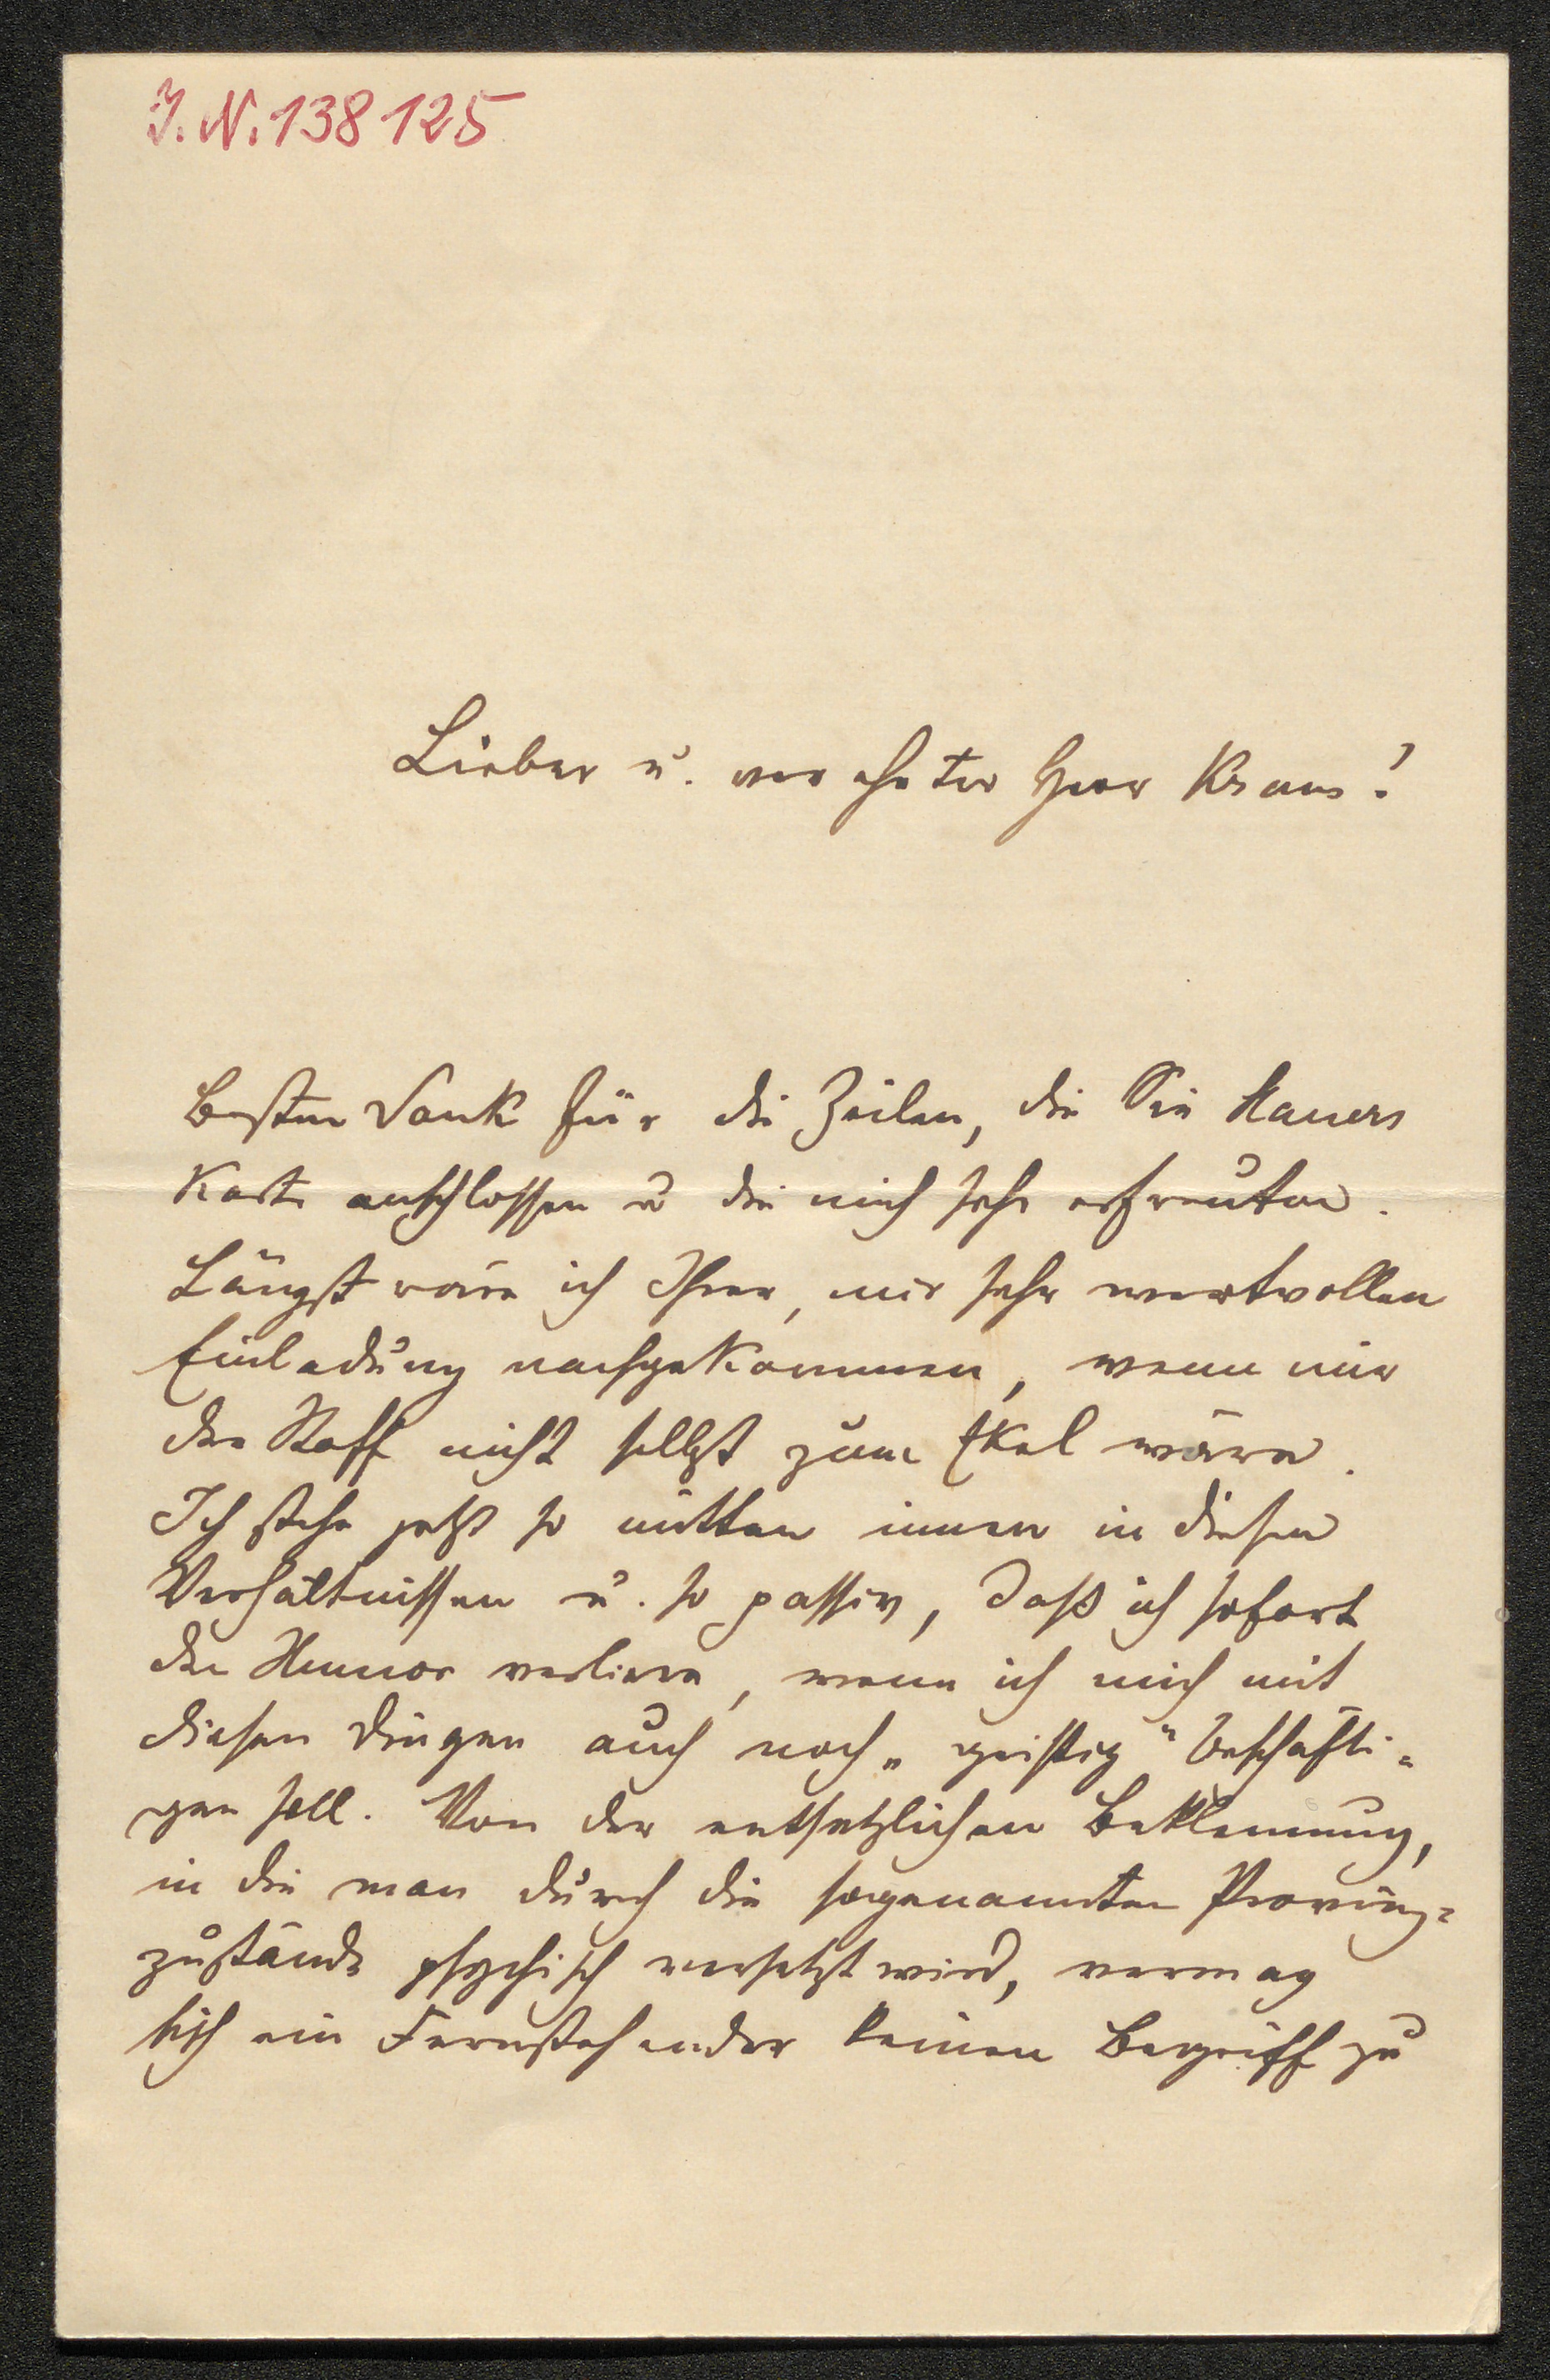 J. N. 138125
Lieber u. verehrter Herr Kraus!
Besten Dank für die Zeilen, die Sie Hauers
Karte anschlossen u die mich sehr erfreuten.
Längst wäre ich Ihrer, mir sehr wertvollen
Einladung nachgekommen, wenn mir
der Stoff nicht selbst zum Ekel wäre.
Ich stehe jetzt so mitten innen in diesen
Verhältnissen u. so passiv, daß ich sofort
den Humor verliere, wenn ich mich mit
diesen Dingen auch noch „geistig“ beschäfti-
gen soll. Von der entsetzlichen Beklemmung,
in die man durch die sogenannten Provinz-
zustände psychisch versetzt wird, vermag
sich ein Fernstehender keinen Begriff zu